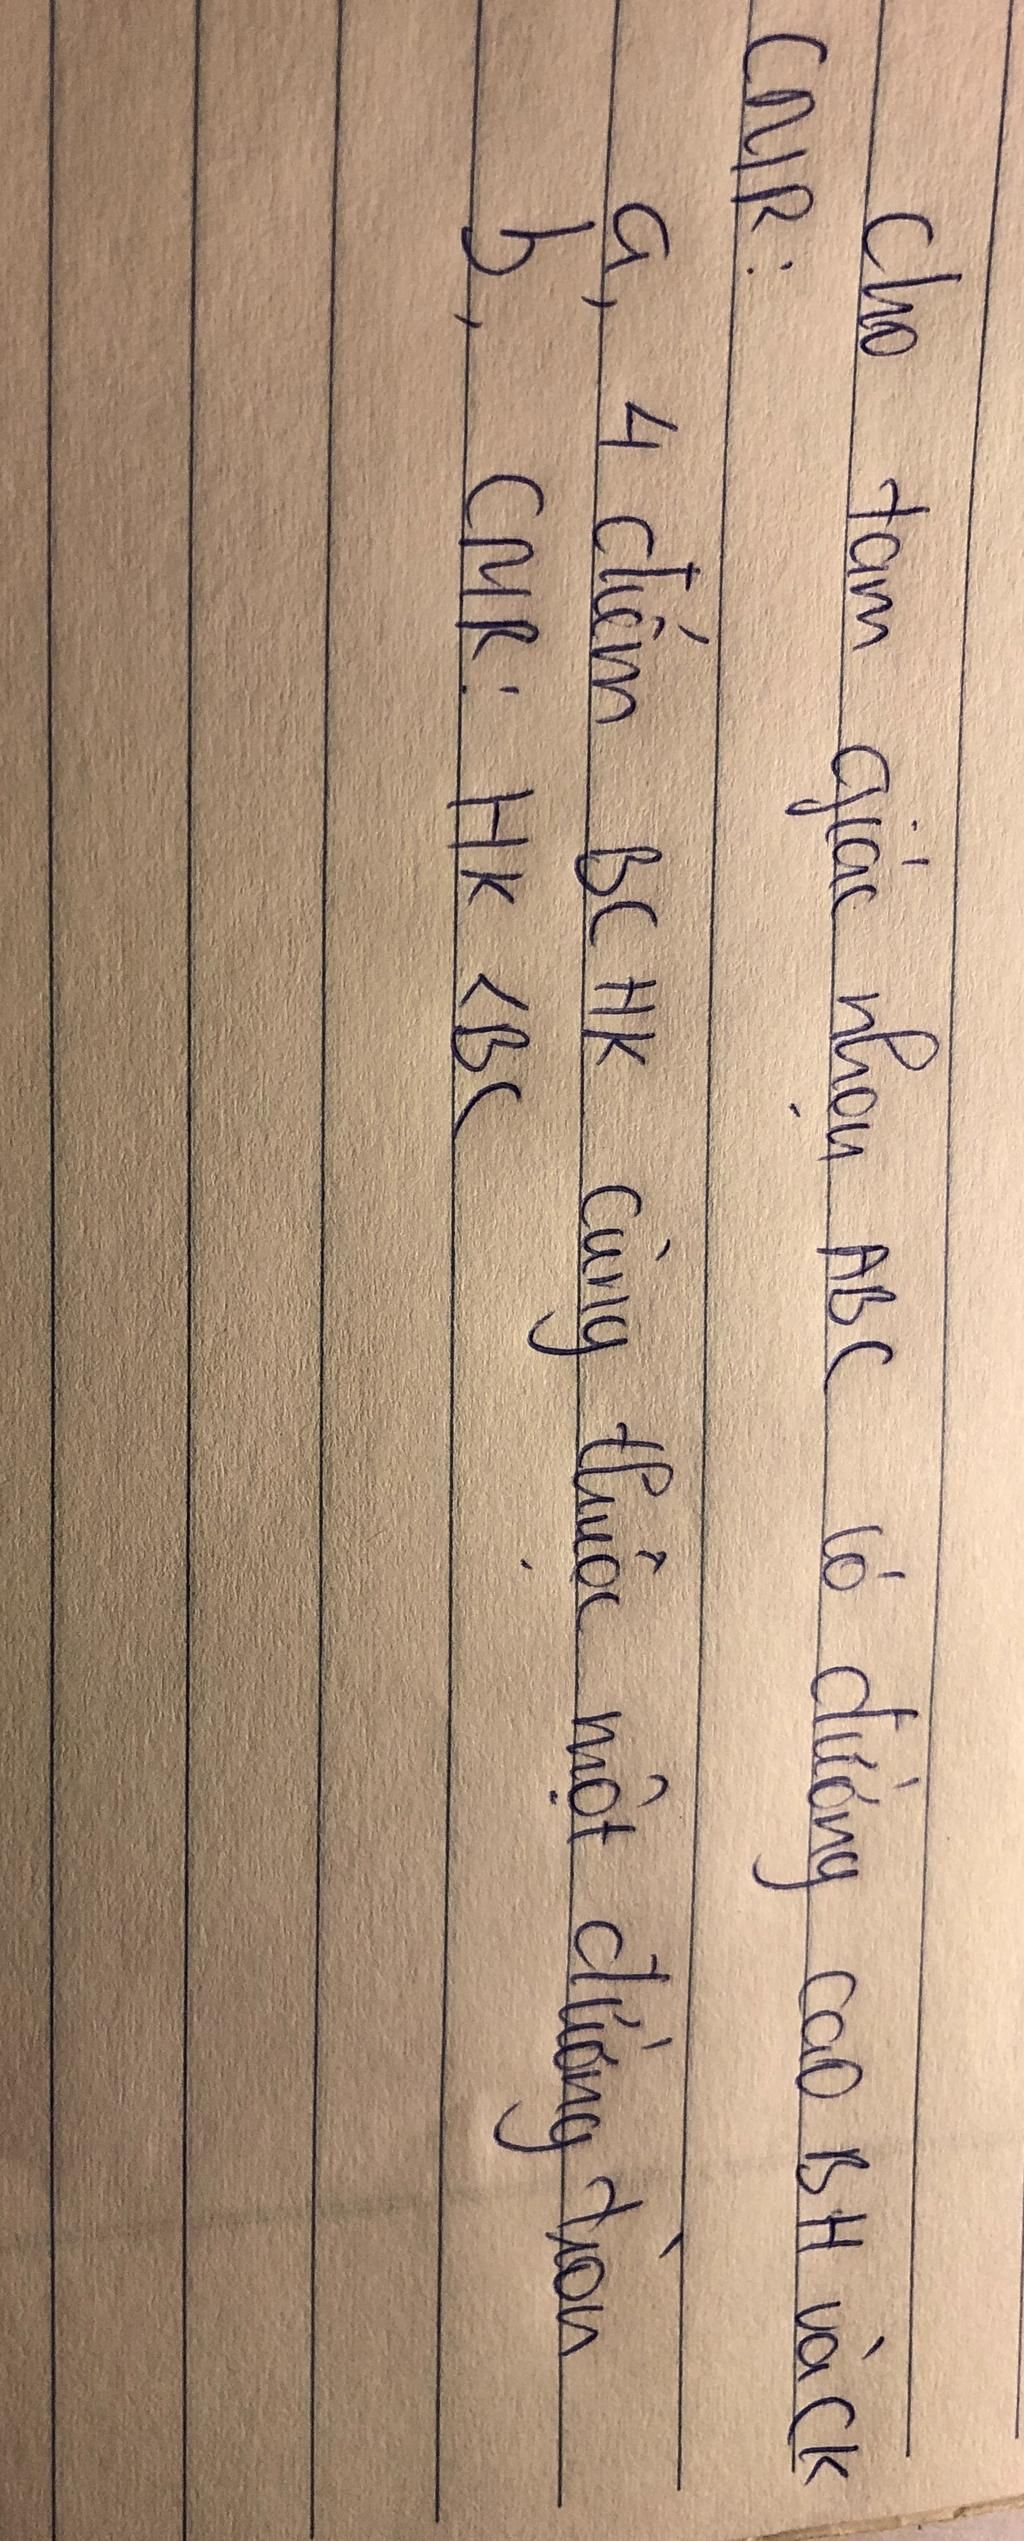 Cho tam giác nhọn ABC có đường cao BH và CK
CMR:
a, 4 điểm BCHK cùng thuộc một đường tròn
b, CMR: HK <BC